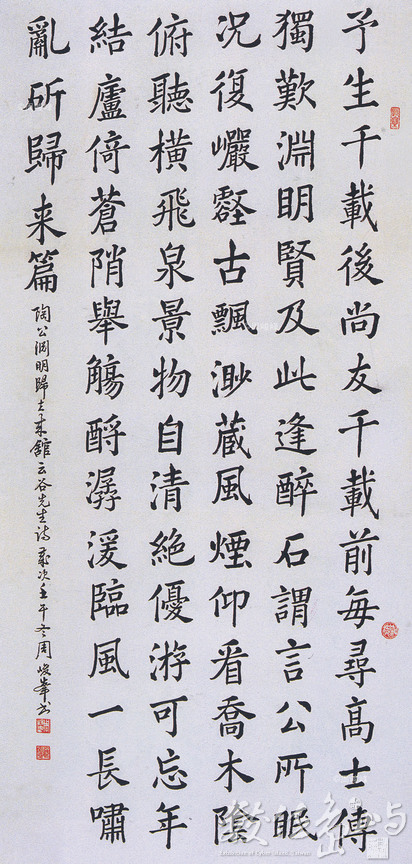 予生千載後尚友千載前每尋髙士傳
獨歎淵明賢及此逢醉石謂言公所眠
況復巖壑古飄渺藏風煙仰看喬木陰
俯聽橫飛泉景物自清絕優游可忘年
結廬倚蒼陗舉觴酹潺湲臨風一長嘯
亂斫歸来篇
陶公淵明歸去来館云谷先生詩歲次壬午冬周峻峯書
數位島嶼